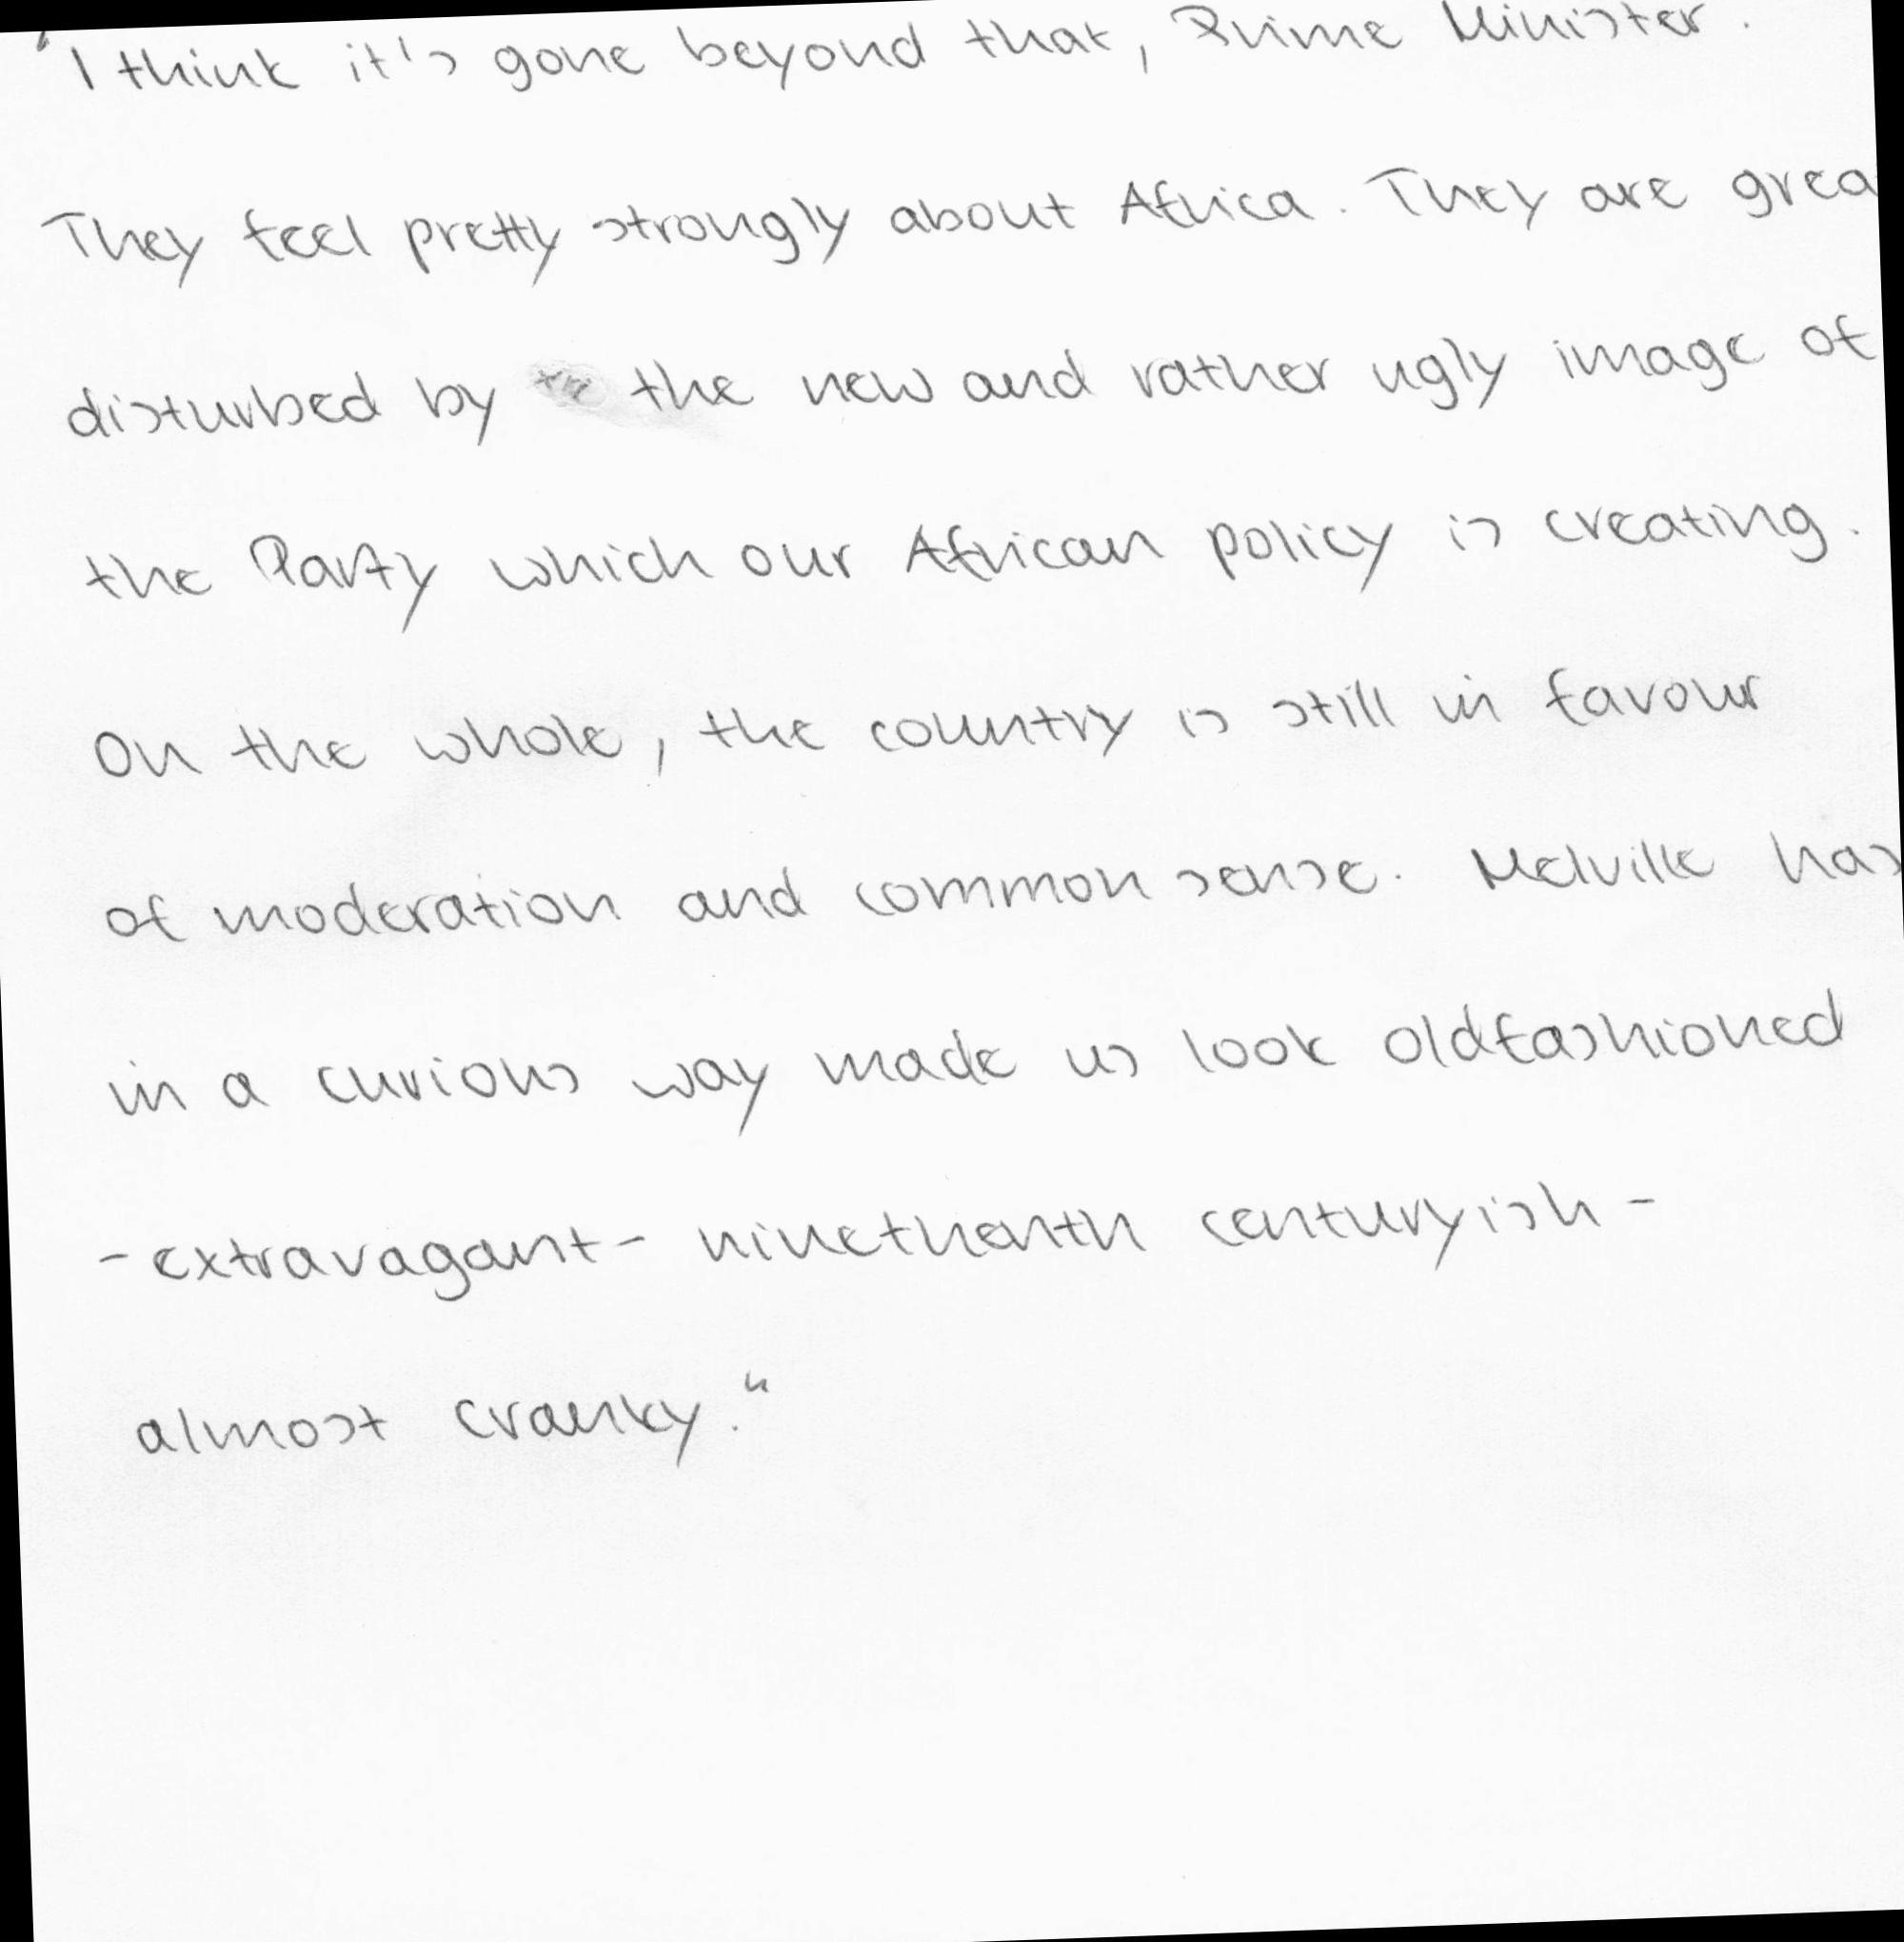 "I think it's gone beyond that, Prime Minister.
They feel pretty strongly about Africa. They are grea
disturbed by the the new and rather ugly image of
the Party which our African policy is creating.
On the whole, the country is still in favour
of moderation and common sense. Melville has
in a curious way made us look oldfashioned
- extravagant - ninethenth centuryish -
almost cranky."